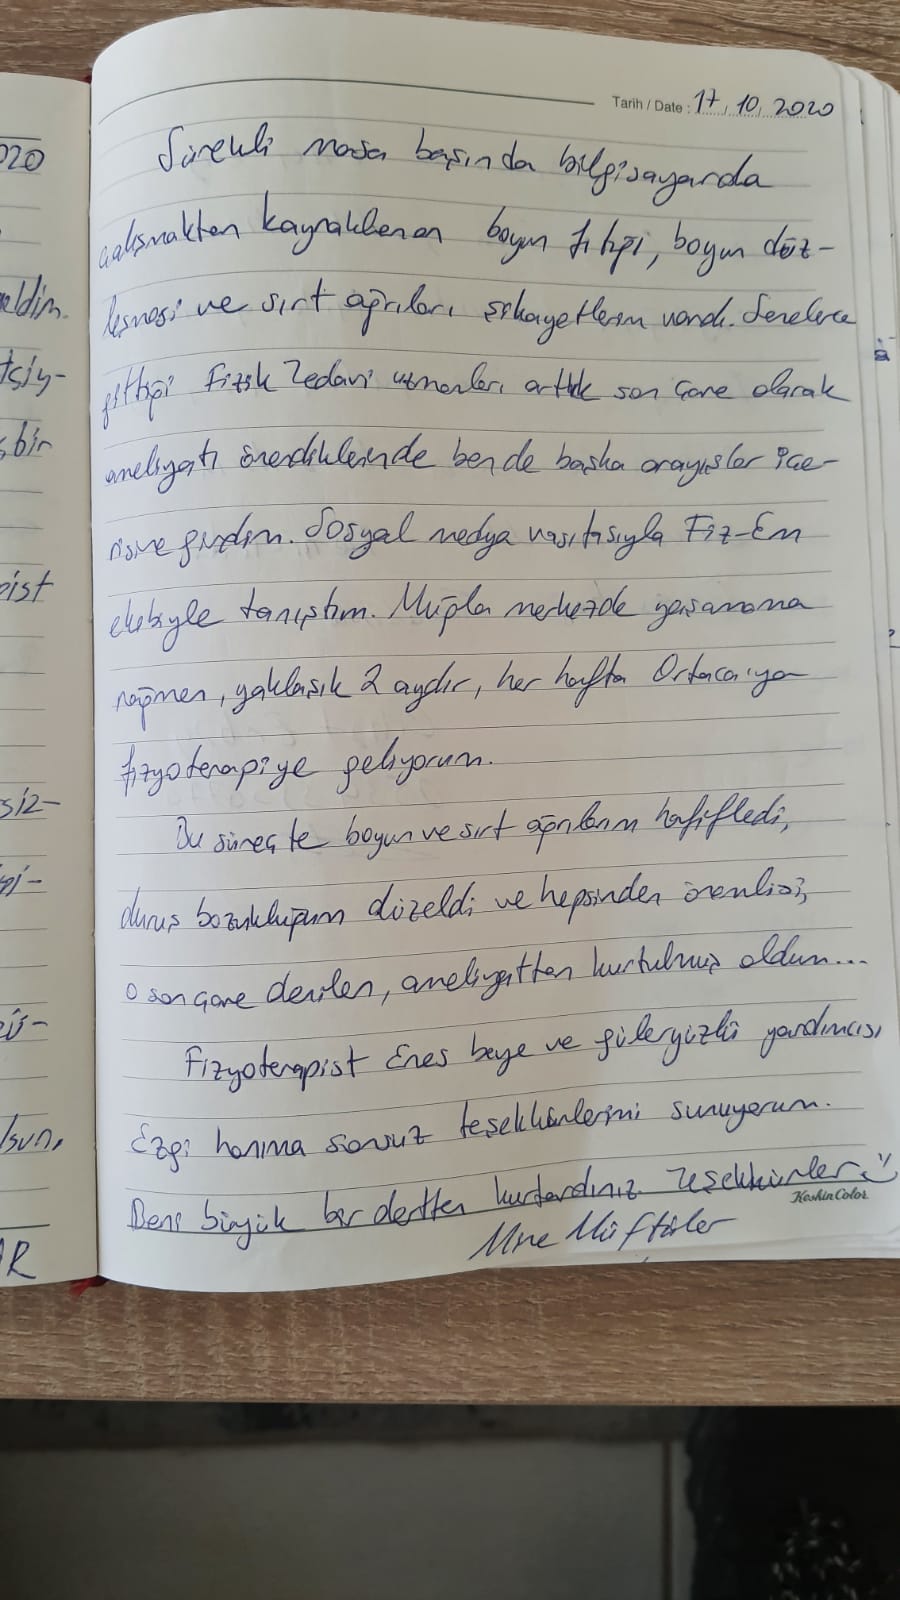 Tarih / Date : 17.10.2020
Sürekli masa başında bilgisayarda
çalışmaktan kaynaklanan boyun fıtığı, boyun düz-
leşmesi ve sırt ağrıları şikayetlerim vardı. Senelerce
gittiği Fizik Tedavi uzmanları artık son çare olarak
ameliyatı önerdiklerinde bende başka arayışlar içe-
risine girdim. Sosyal medya vasıtasıyla Fiz-Em
ekibiyle tanıştım. Muğla merkezde yaşamama
rağmen, yaklaşık 2 aydır, her hafta Ortaca'ya
fizyoterapiye geliyorum.
Bu süreçte boyun ve sırt ağrılarım hafifledi,
duruş bozukluğum düzeldi ve hepsinden önemlisi,
o son çare denilen, ameliyattan kurtulmuş oldum...
Fizyoterapist Enes beye ve güleryüzlü yardımcısı
Ezgi hanıma sonsuz teşekkürlerimi sunuyorum.
Beni büyük bir dertten kurtardınız. Teşekkürler
KeskinColor
Mine Müftüler
020
eldim.
tsiy-
bir
pist
siz-
R